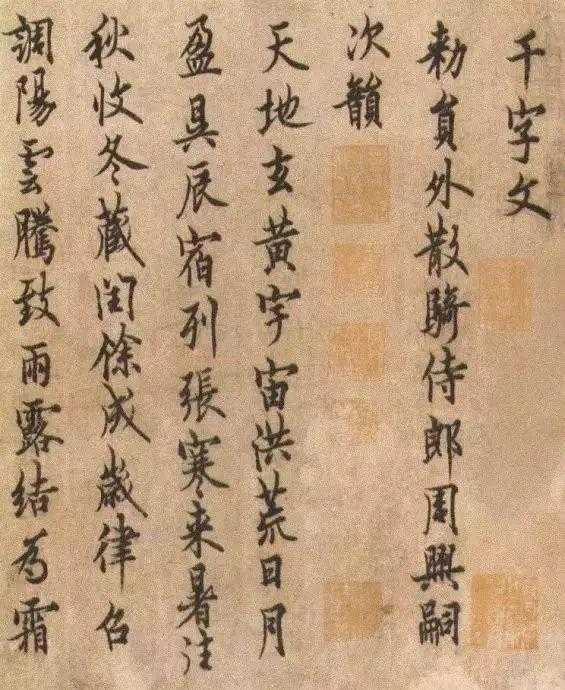 千字文
勑員外散騎侍郎周興嗣
次韻
天地玄黃宇宙洪荒日月
盈昃辰宿列張寒来暑往
秋收冬藏閏餘成歲律召
調陽雲騰致雨露結為霜